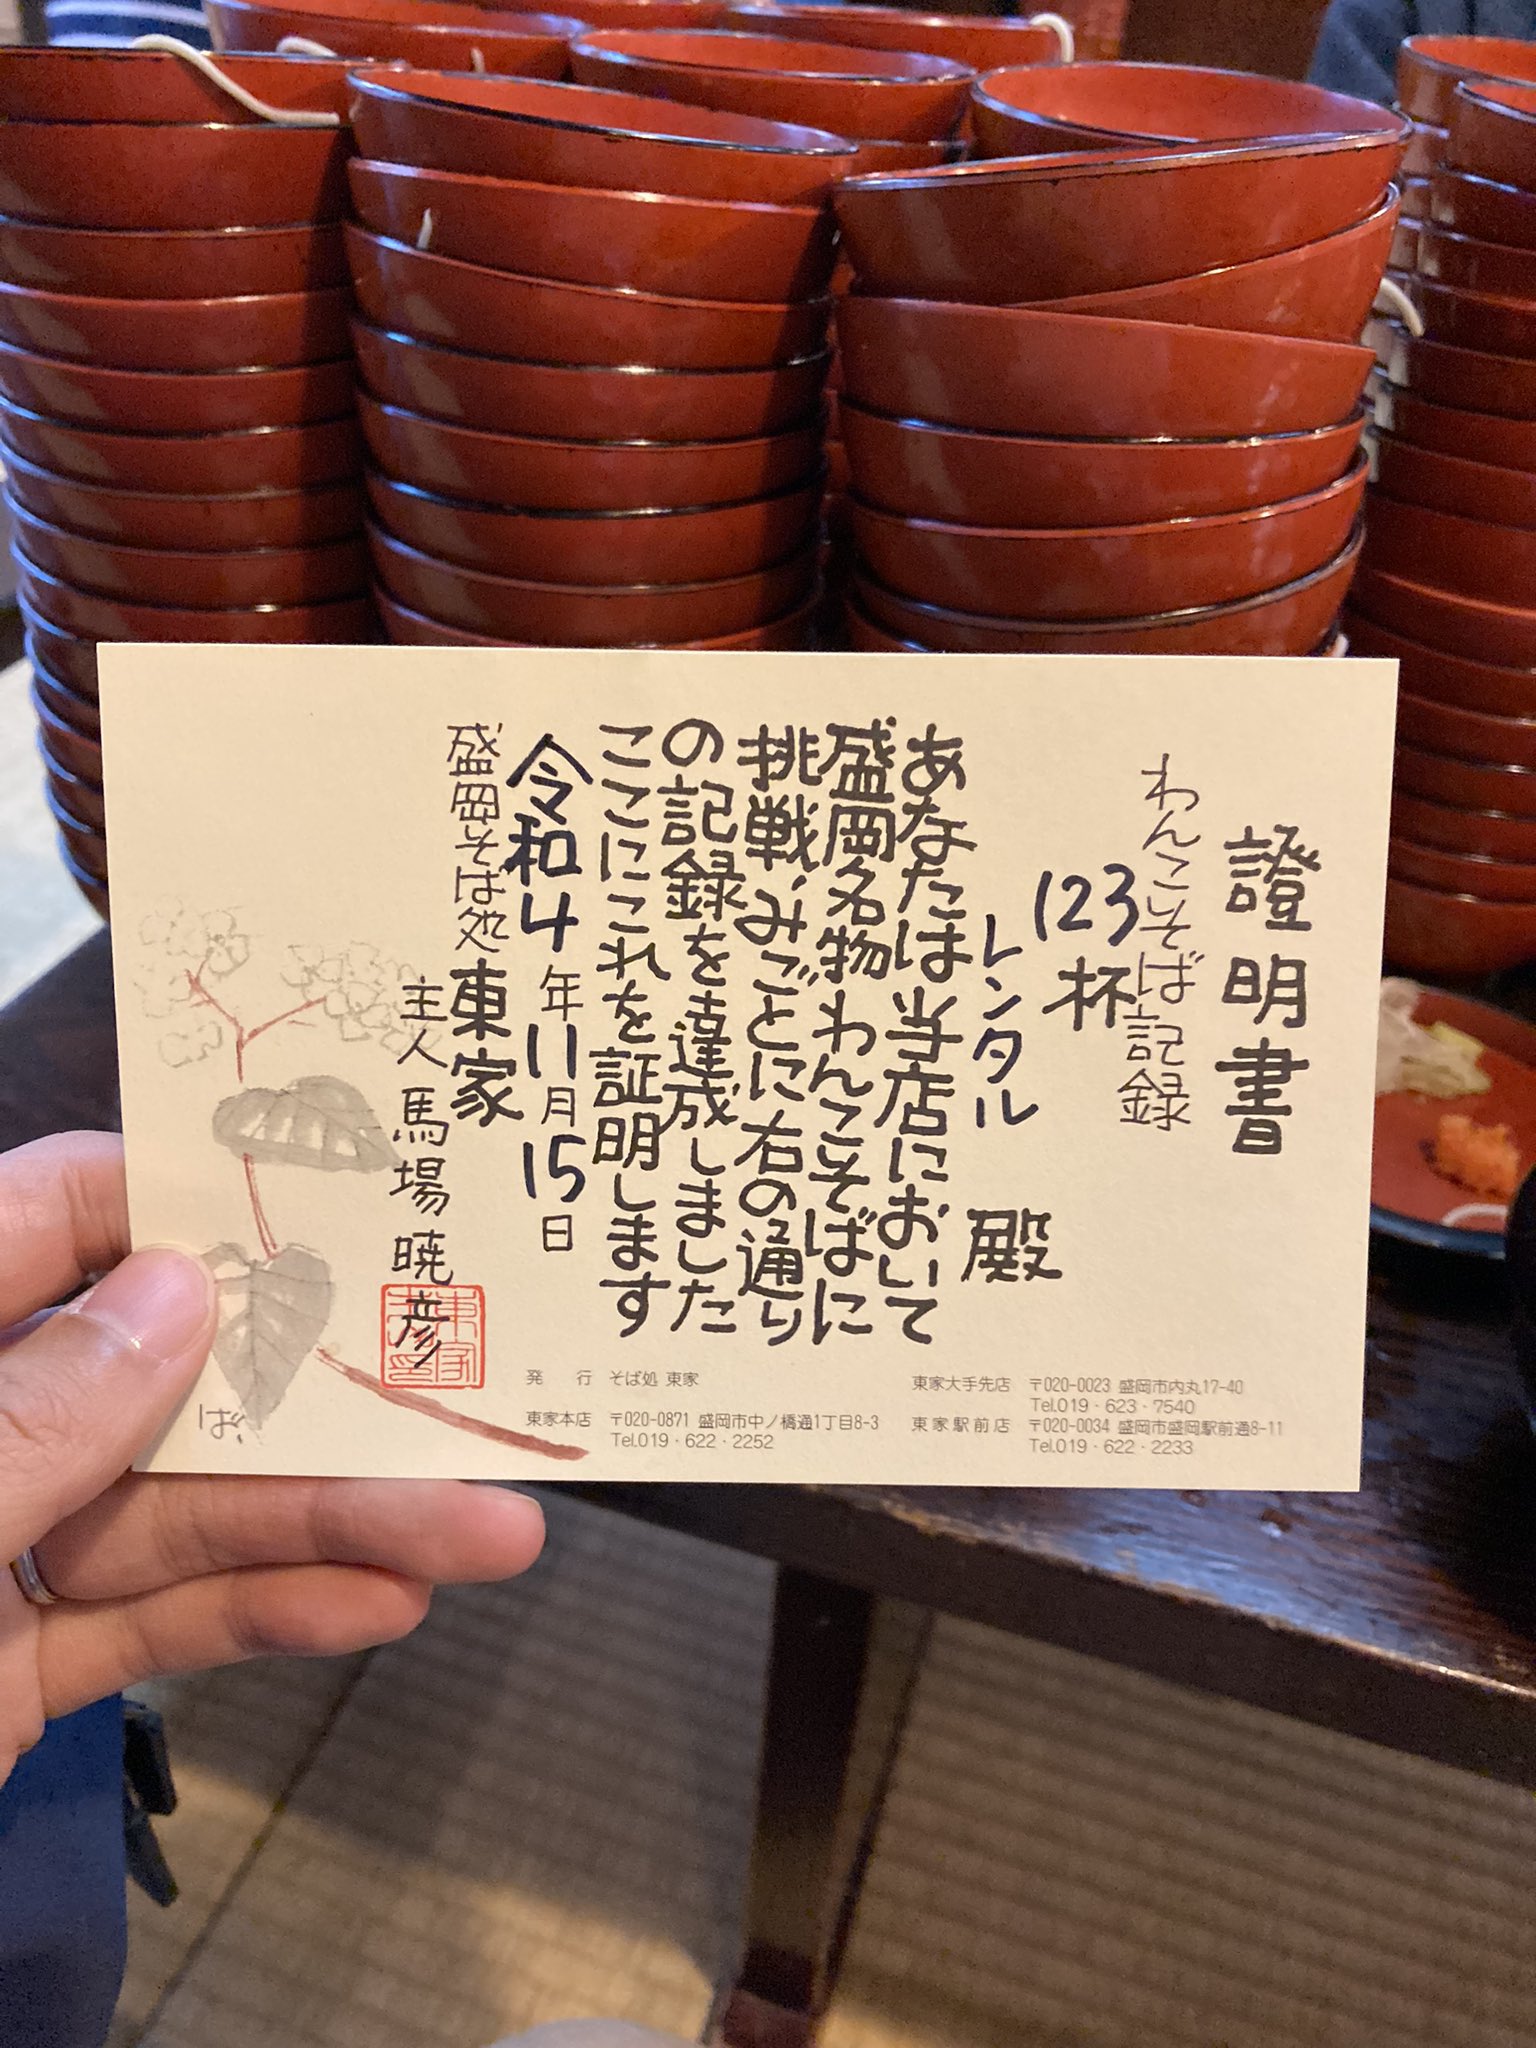 證明書
わんこそば記録
123杯
レンタル 殿
あなたは当店において
盛岡名物わんこそばに
挑戦、みごとに右の通り
の記録を達成しました
ここにこれを証明します
令和4年11月15日
盛岡そば処 東家
主人 馬場暁彦
東家
ば
発 行 そば処 東家
東家本店 〒020-0871 盛岡市中ノ橋通1丁目8-3
Tel.019・622・2252
東家大手先店 〒020-0023 盛岡市内丸17-40
Tel.019・623・7540
東家駅前店 〒020-0034 盛岡市盛岡駅前通8-11
Tel.019・622・2233